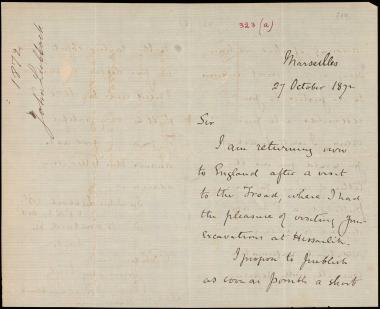 323 (a)
1872
John Lubbock
Marseilles
27 October 1872
Sir
I am returning now
to England after a visit
to the Troad, where I had
the pleasure of visiting your
Excavations at Hissarlik.
I propose to publish
as soon as possible a short